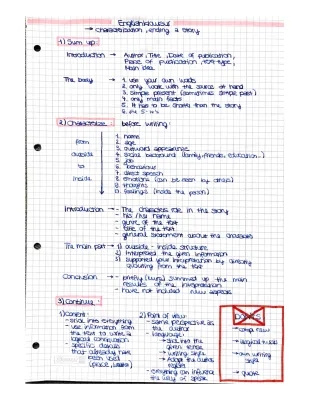 Englishklausur
→ characterization, ending a story
1) Sum up:
Introduction → Author, Title, Date of publication,
Place of publication, text type,
Main idea
The body → 1. use your own words
2. only work with the source at hand
3. simple present (sometimes simple past)
4. only main facts
5. It has to be shorter than the story
6. 5-W's
2) Characterize: before writing:
from outside to inside
1. name
2. age
3. outward appearance
4. social background (family, friends, education...)
5. job
6. behaviour
7. direct speech
8. emotions (can be seen by others)
9. thoughts
10. feelings (inside the person)
Introduction → - The characters role in the story
- his / her name
- genre of the text
- title of the text
- general statement about the character
The main part → 1) outside - inside structure
2) Interpreted the given information
3) supported your interpretation by directly
quoting from the text
Conclusion → - briefly summed up the main
results of the interpretation
- have not included new aspects
3) Continue:
1) Content:
- stick into everything
- use information from
the text to write a
logical continuation
- specific details
that already have
been used
2) Point of view:
- same perspective as
the author
- language:
→ stick into the
given tense
→ writing style
→ Adopt the
- everything can influence
the way of speak
DON'TS
→ own writing
style
→ quote